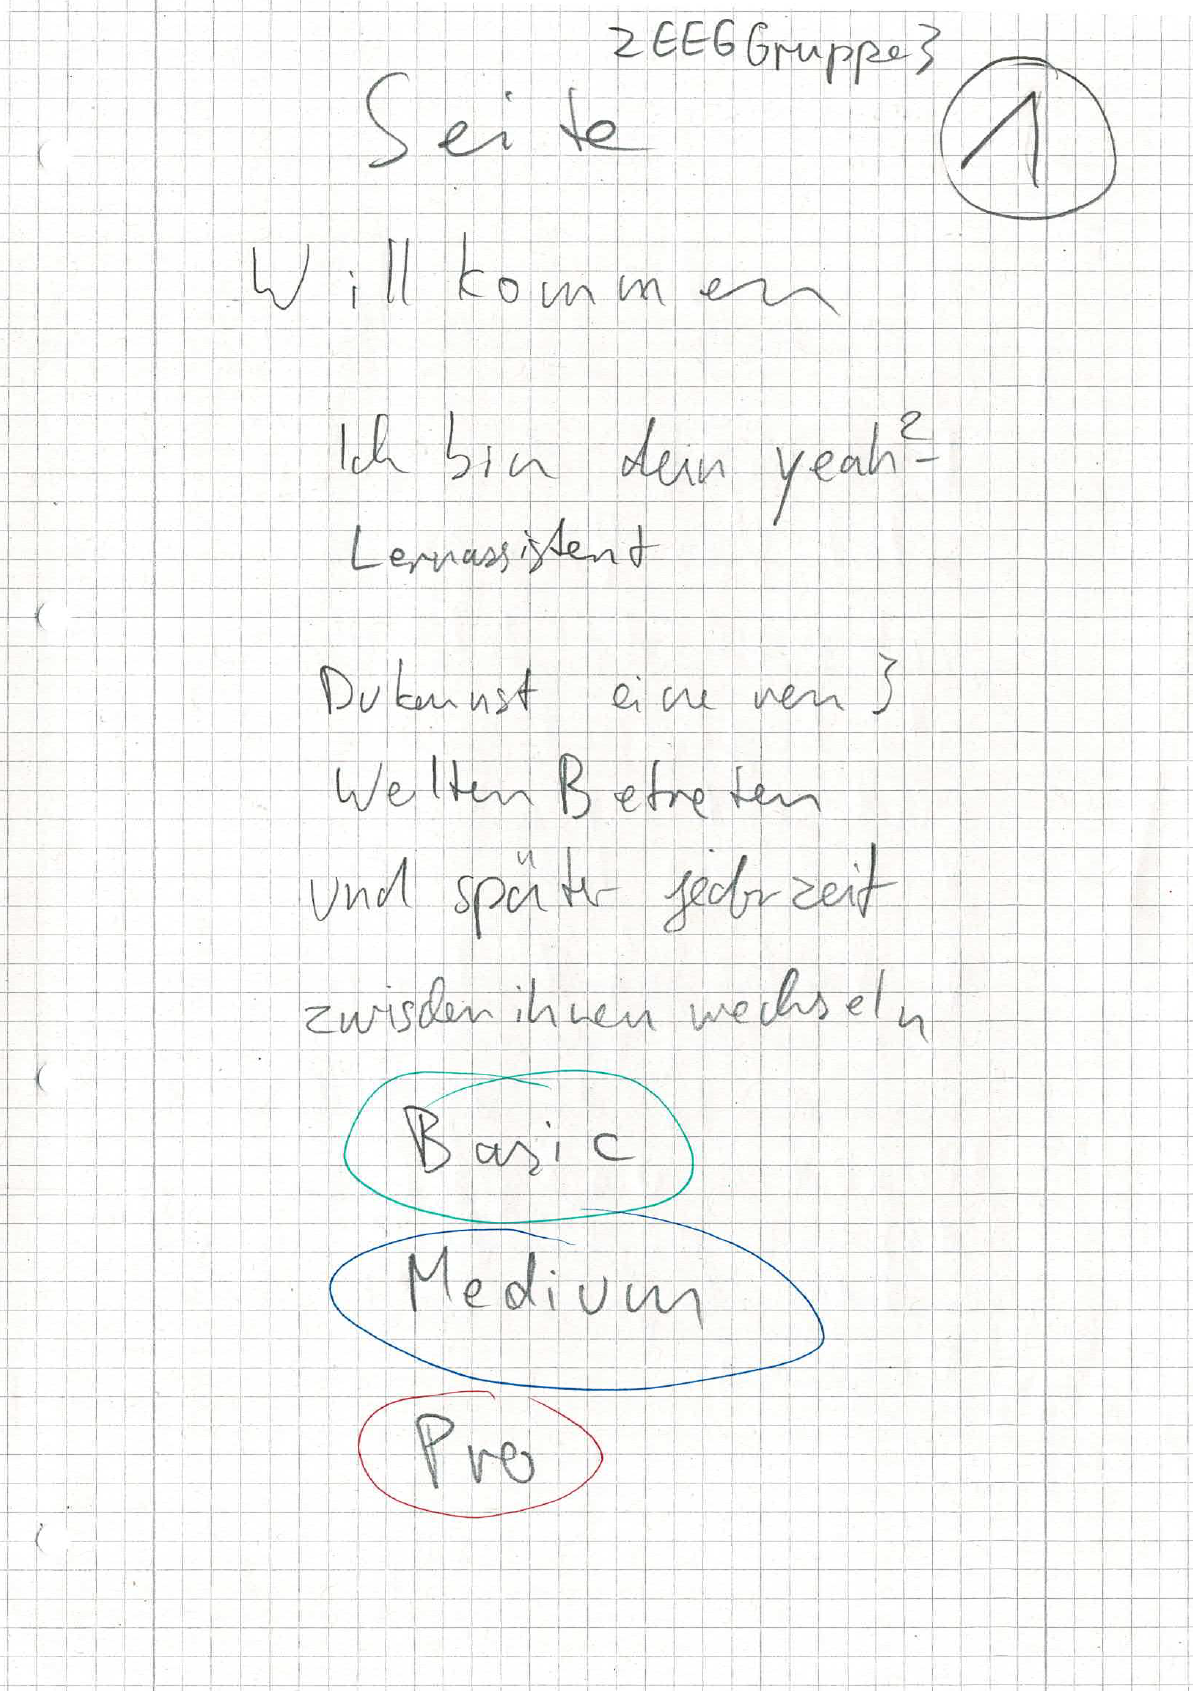 2EEG Gruppe 3
Seite 1
Willkommen
Ich bin dein yeah²-
Lernassistent
Du kannst eine ven 3
Welten Betreten
und später jederzeit
zwischen ihnen wechseln
Basic
Medium
Pro